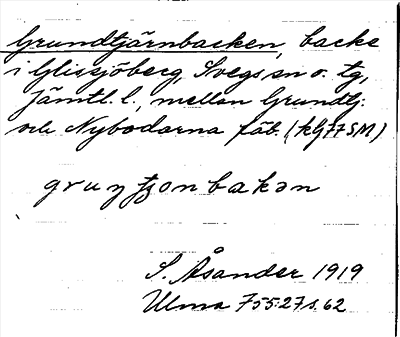 Grundtjärnbacken, backe
i Glissjöberg, Svegs sn o. tg,
Jämtl. l., mellan Grundtj.
och Nybodarna fäb. (kbl 77 SM)
S. Åsander 1919
Ulma 755:27 s. 62